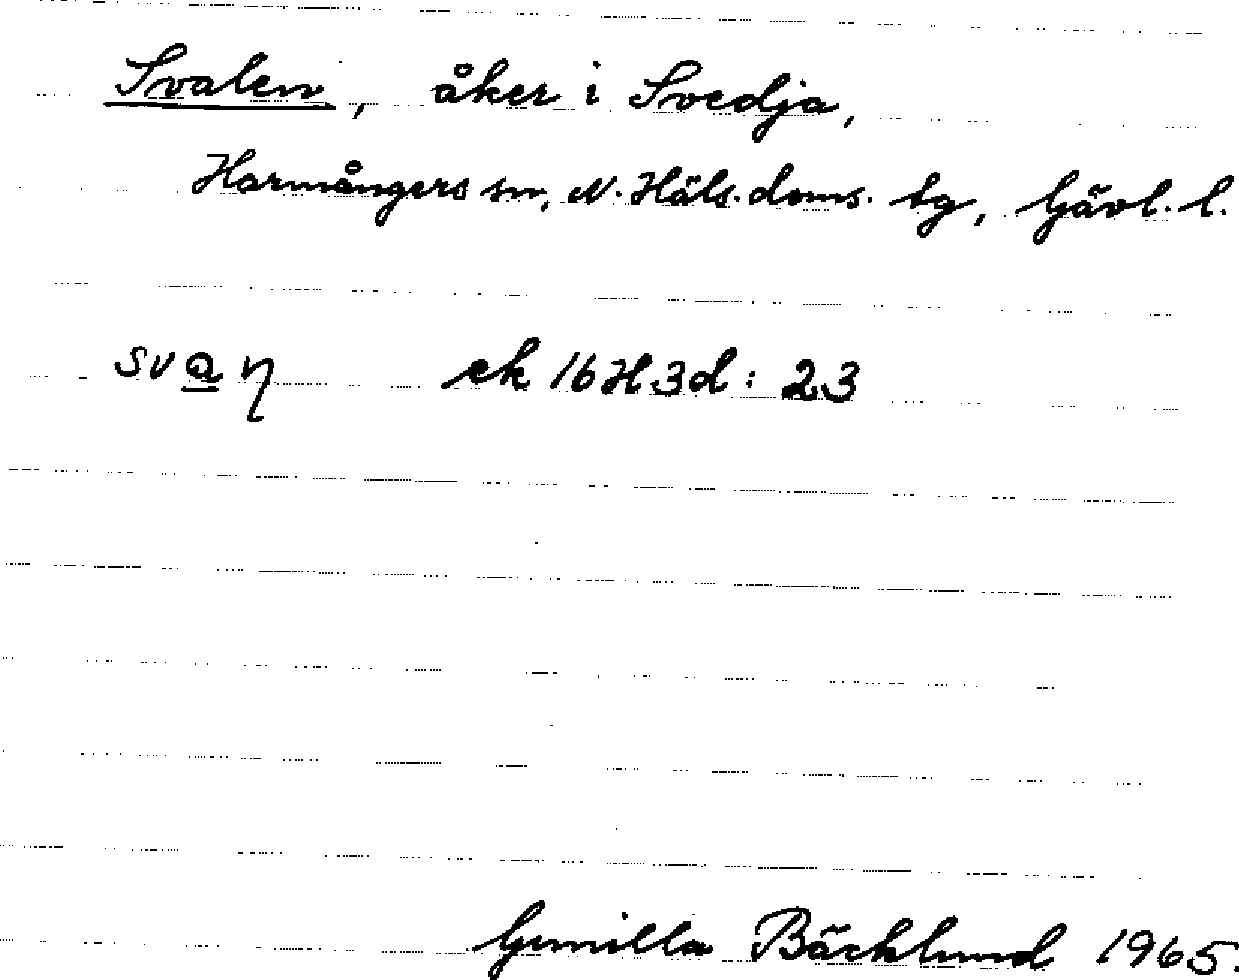 Svalen, åker i Svedja,
Harmångers sn, N. Häls. doms. tg, Gävl. l.
svaη ek 16H3d: 23
Gunilla Bäcklund 1965.